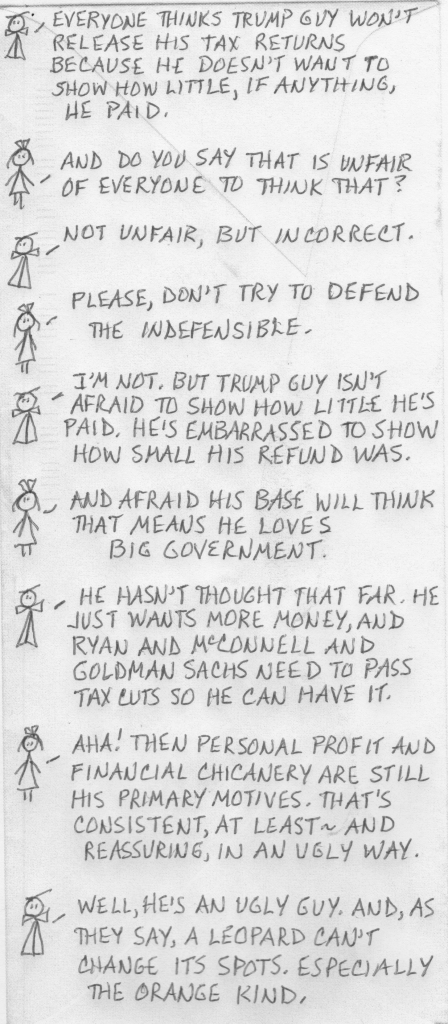 EVERYONE THINKS TRUMP GUY WON'T
RELEASE HIS TAX RETURNS
BECAUSE HE DOESN'T WANT TO
SHOW HOW LITTLE, IF ANYTHING,
HE PAID.
AND DO YOU SAY THAT IS UNFAIR
OF EVERYONE TO THINK THAT?
NOT UNFAIR, BUT INCORRECT.
PLEASE, DON'T TRY TO DEFEND
THE INDEFENSIBLE.
I'M NOT. BUT TRUMP GUY ISN'T
AFRAID TO SHOW HOW LITTLE HE'S
PAID. HE'S EMBARRASSED TO SHOW
HOW SMALL HIS REFUND WAS.
AND AFRAID HIS BASE WILL THINK
THAT MEANS HE LOVES
BIG GOVERNMENT.
HE HASN'T THOUGHT THAT FAR. HE
JUST WANTS MORE MONEY, AND
RYAN AND McCONNELL AND
GOLDMAN SACHS NEED TO PASS
TAX CUTS SO HE CAN HAVE IT.
AHA! THEN PERSONAL PROFIT AND
FINANCIAL CHICANERY ARE STILL
HIS PRIMARY MOTIVES. THAT'S
CONSISTENT, AT LEAST~ AND
REASSURING, IN AN UGLY WAY.
WELL, HE'S AN UGLY GUY. AND, AS
THEY SAY, A LEOPARD CAN'T
CHANGE ITS SPOTS. ESPECIALLY
THE ORANGE KIND.